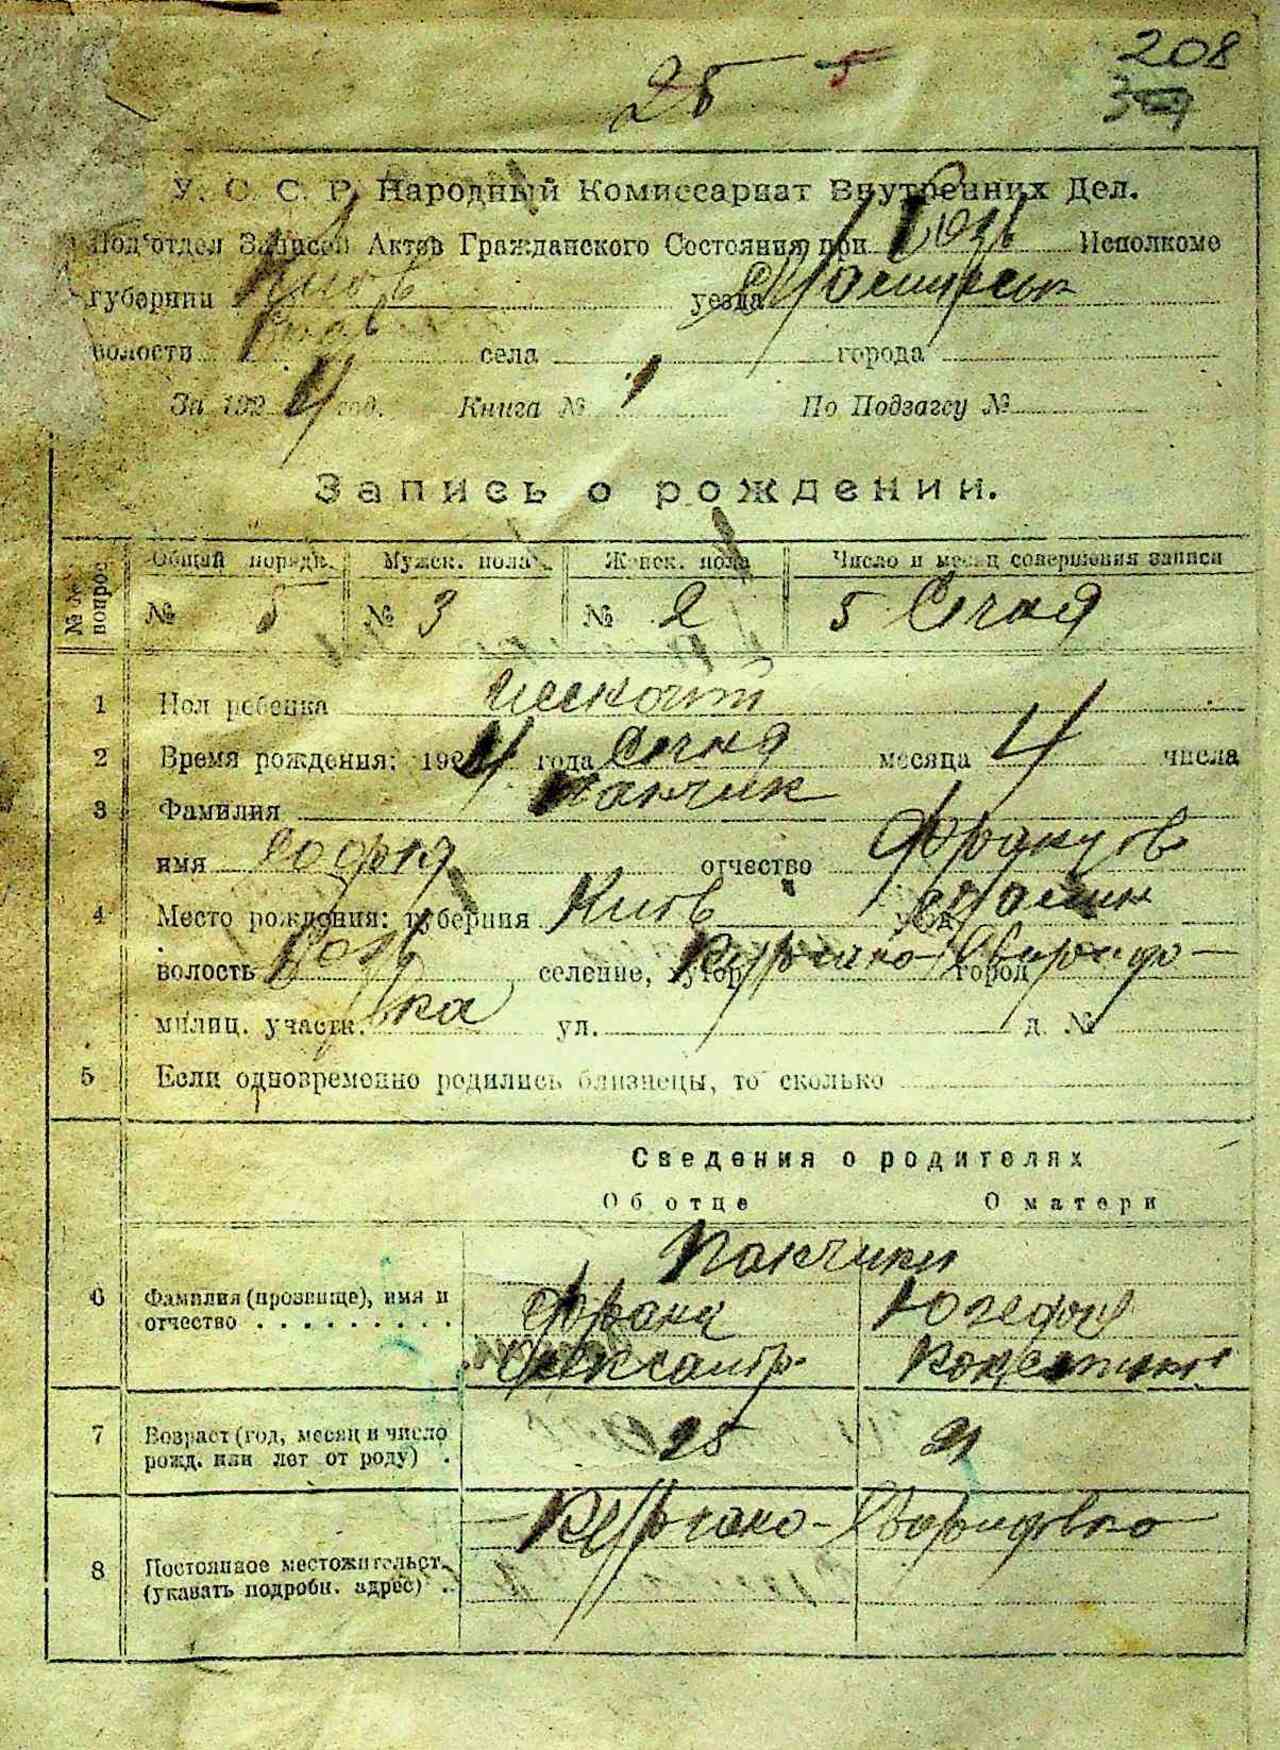 25 5 208
У. С. С. Р. Народный Комиссариат Внутренних Дел.
Под'отдел Записей Актов Гражданского Состояния при Исполкоме
губернии Київ уезда
волости села города
За 1924 год. Книга № 1 По Подзагсу №
Запись о рождении.
№№ вопрос.
Общий порядк. Мужск. пола Женск. пола Число и месяц совершения записи
№ 5 № 3 № 2 5 Січня
1 Пол ребенка
2 Время рождения: 1924 года Січня месяца 4 числа
3 Фамилия Панчик
имя Софія отчество Франців
4 Место рождения: губерния Київ уезд
волость селение, хутор город
милиц. участк. вка ул. д. №
5 Если одновременно родились близнецы, то сколько
Сведения о родителях
Об отце О матери
Панчики
6 Фамилия (прозвище), имя и Франц Юзефа
отчество
7 Возраст (год, месяц и число 25 21
рожд. или лет от роду)
8 Постоянное местожительст.
(указать подробн. адрес)